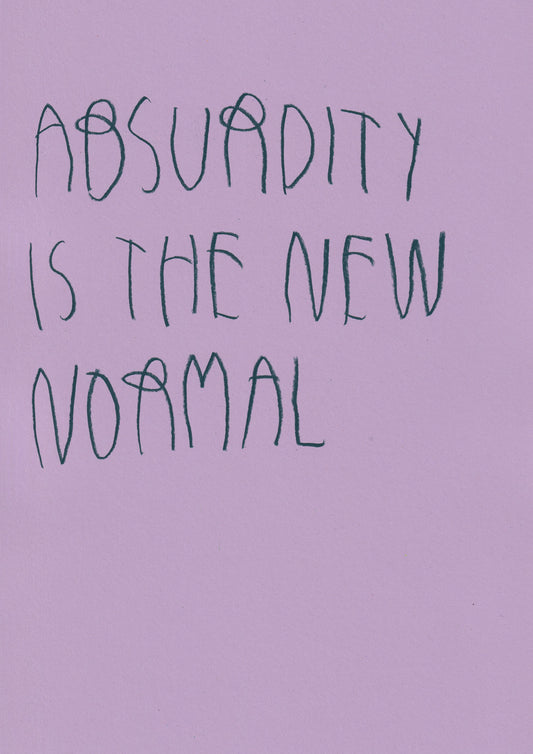 ABSURDITY
IS THE NEW
NORMAL